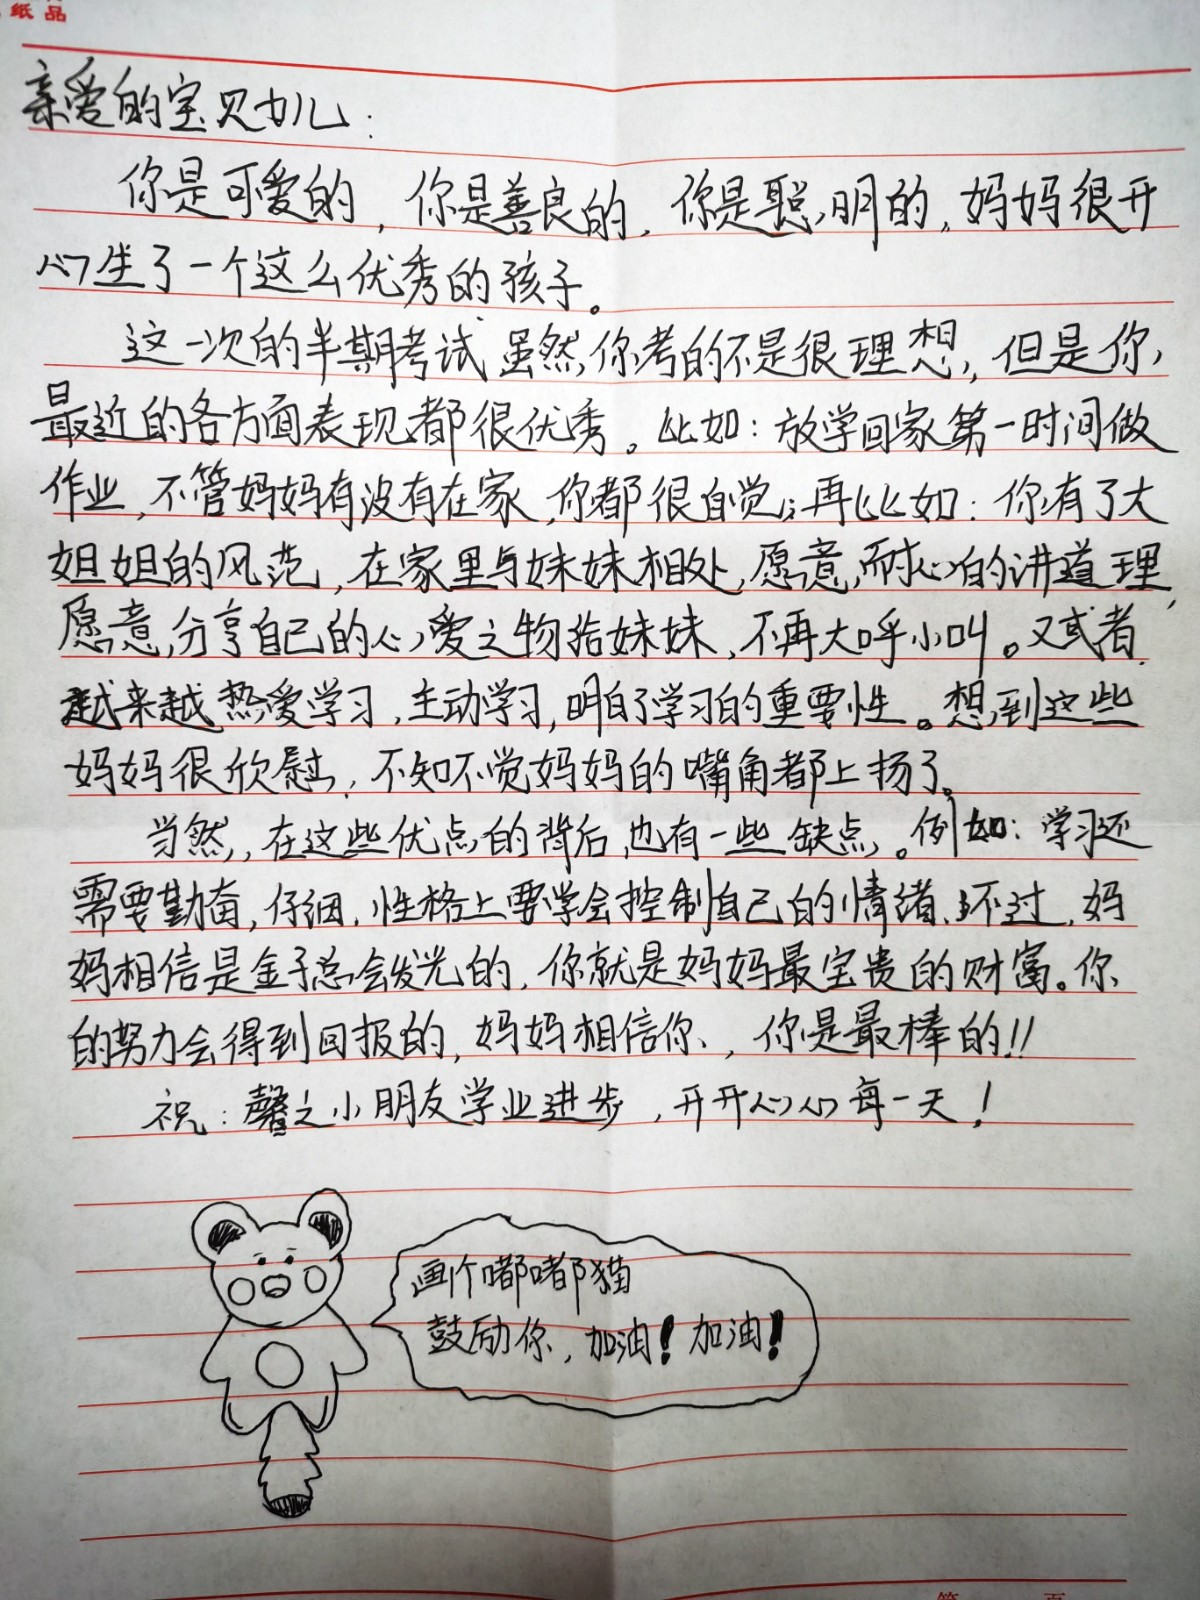 纸品
亲爱的宝贝女儿：
你是可爱的，你是善良的，你是聪明的，妈妈很开
心生了一个这么优秀的孩子。
这一次的半期考试虽然你考的不是很理想，但是你
最近的各方面表现都很优秀。比如：放学回家第一时间做
作业，不管妈妈有没有在家，你都很自觉；再比如：你有了大
姐姐的风范，在家里与妹妹相处，愿意耐心的讲道理，
愿意分享自己的心爱之物给妹妹，不再大呼小叫。又或者
越来越热爱学习，主动学习，明白了学习的重要性。想到这些
妈妈很欣慰，不知不觉妈妈的嘴角都上扬了。
当然，在这些优点的背后也有一些缺点。例如：学习还
需要勤奋，仔细，性格上要学会控制自己的情绪，不过，妈
妈相信是金子总会发光的，你就是妈妈最宝贵的财富。你
的努力会得到回报的，妈妈相信你，你是最棒的!!
祝：馨之小朋友学业进步，开开心心每一天！
画个嘟嘟猫
鼓励你，加油！加油！
第 页